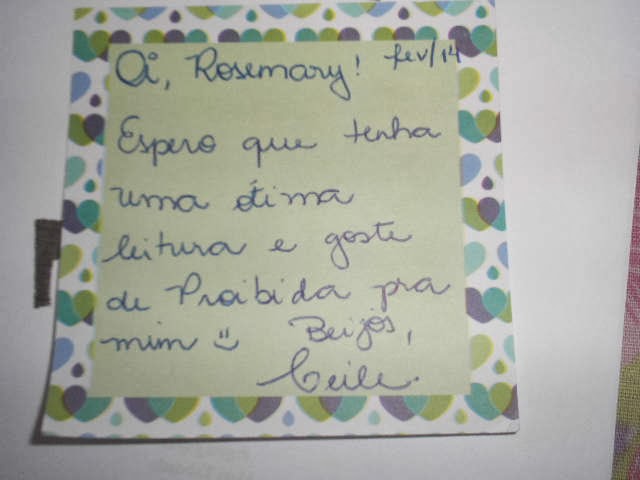 Oi, Rosemary! fev/14
Espero que tenha
uma ótima
leitura e goste
de Proibida pra
mim Beijos,
Ceile.